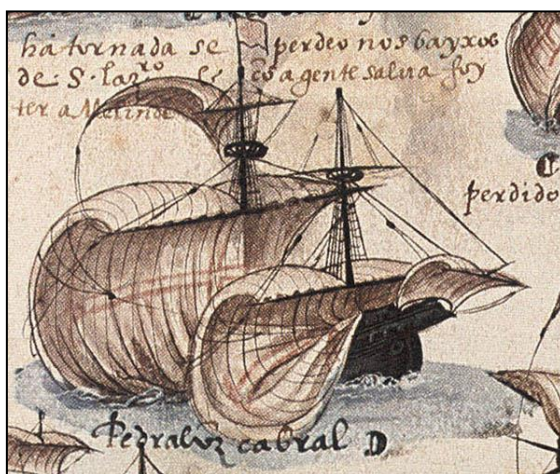 há tornada se perdeo nos bayxos
de S. lazro co a gente salua foy
ter a Melinde
perdido
Pedraluz cabral D